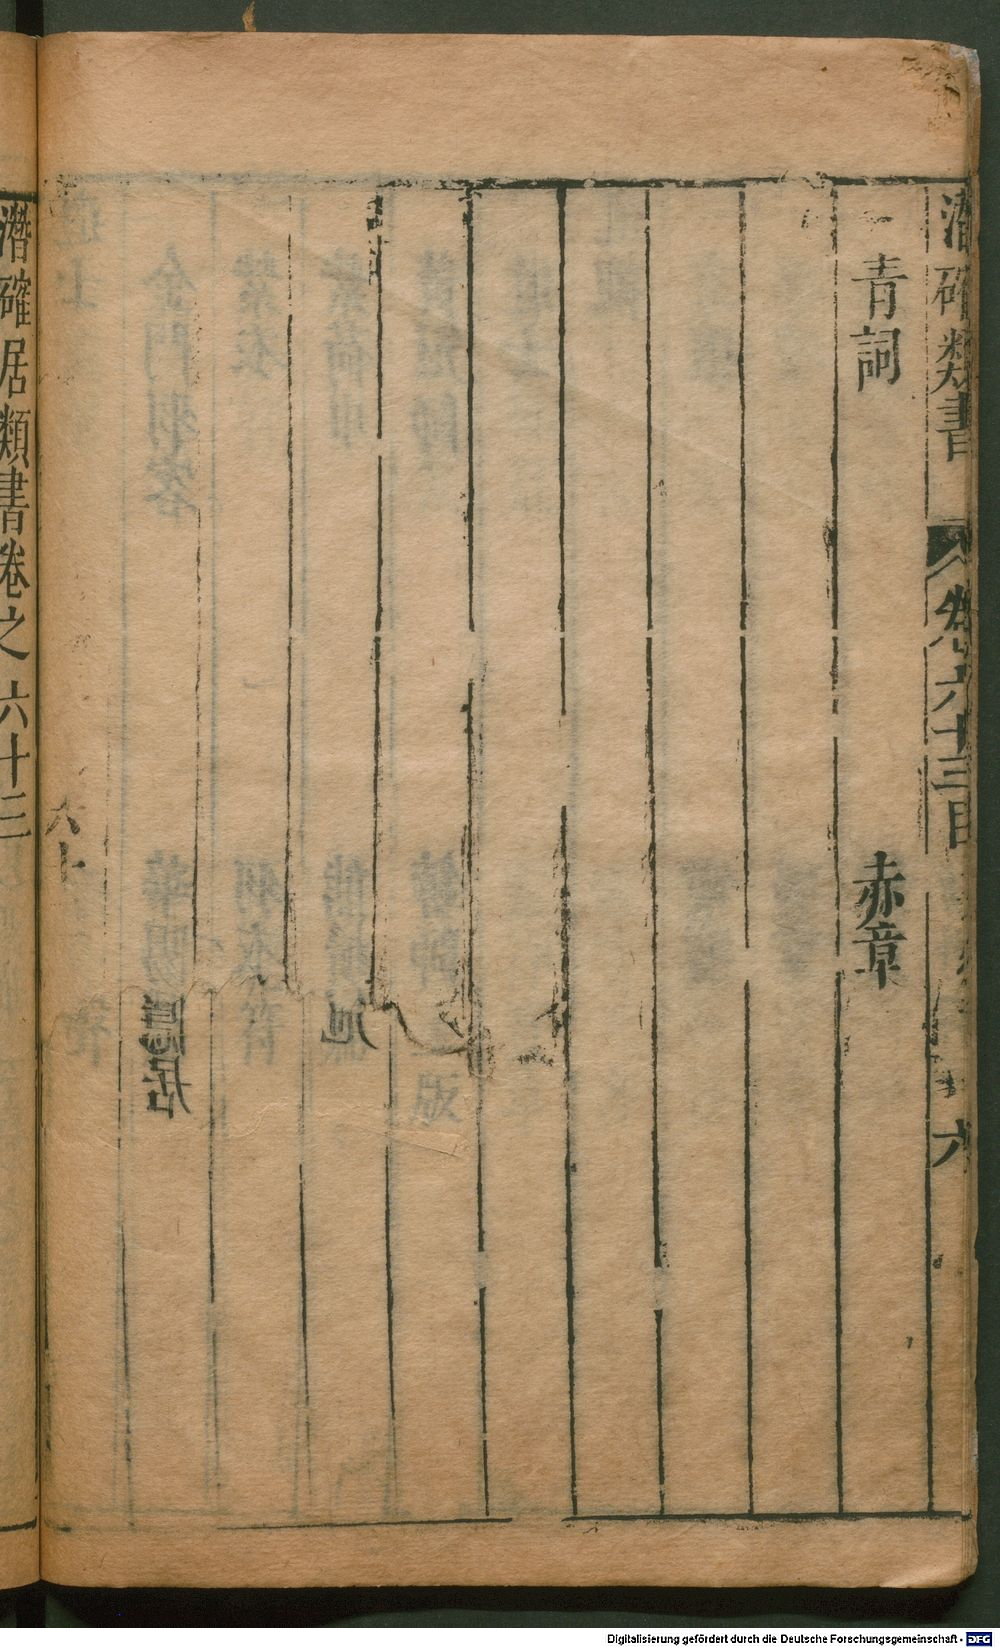 潛確類書 卷六十三目 六
青詞 赤章
潛確居類書卷之六十三
Digitalisierung gefördert durch die Deutsche Forschungsgemeinschaft - DFG